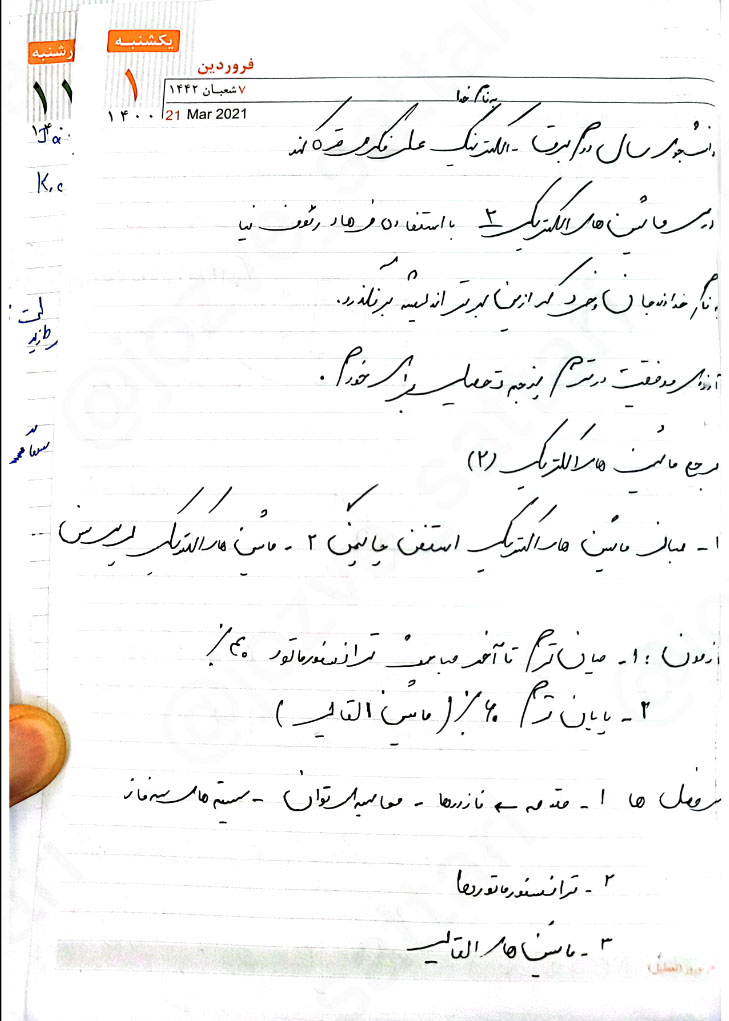 یکشنبه
رشنبه
۱
۱۱
فروردین
۷ شعبان ۱۴۴۲
21 Mar 2021
۱۴۰۰
به نام خدا
دانشجوی سال دوم برق - الکترونیک علی
درس ماشین های الکتریکی ۲ با استفاده فرهاد رئوف نیا
به نام خداوند جان و خرد کزین برتر اندیشه برنگذرد.
آرزوی موفقیت در ترم پنجم تحصیلی برای خودم.
مرجع ماشین های الکتریکی (۲)
۱- مبانی ماشین های الکتریکی استفن چاپمن ۲- ماشین های الکتریکی
آزمون: ۱- میان ترم تا آخر مبحث ترانسفورماتور ۴۰٪
۲- پایان ترم ۶۰٪ (ماشین القایی)
سرفصل ها ۱- مقدمه ← فازورها - محاسبه ی توان - سیستم های سه فاز
۲- ترانسفورماتورها
۳- ماشین های القایی
نوروز (تعطیل)
@jozve_sattari